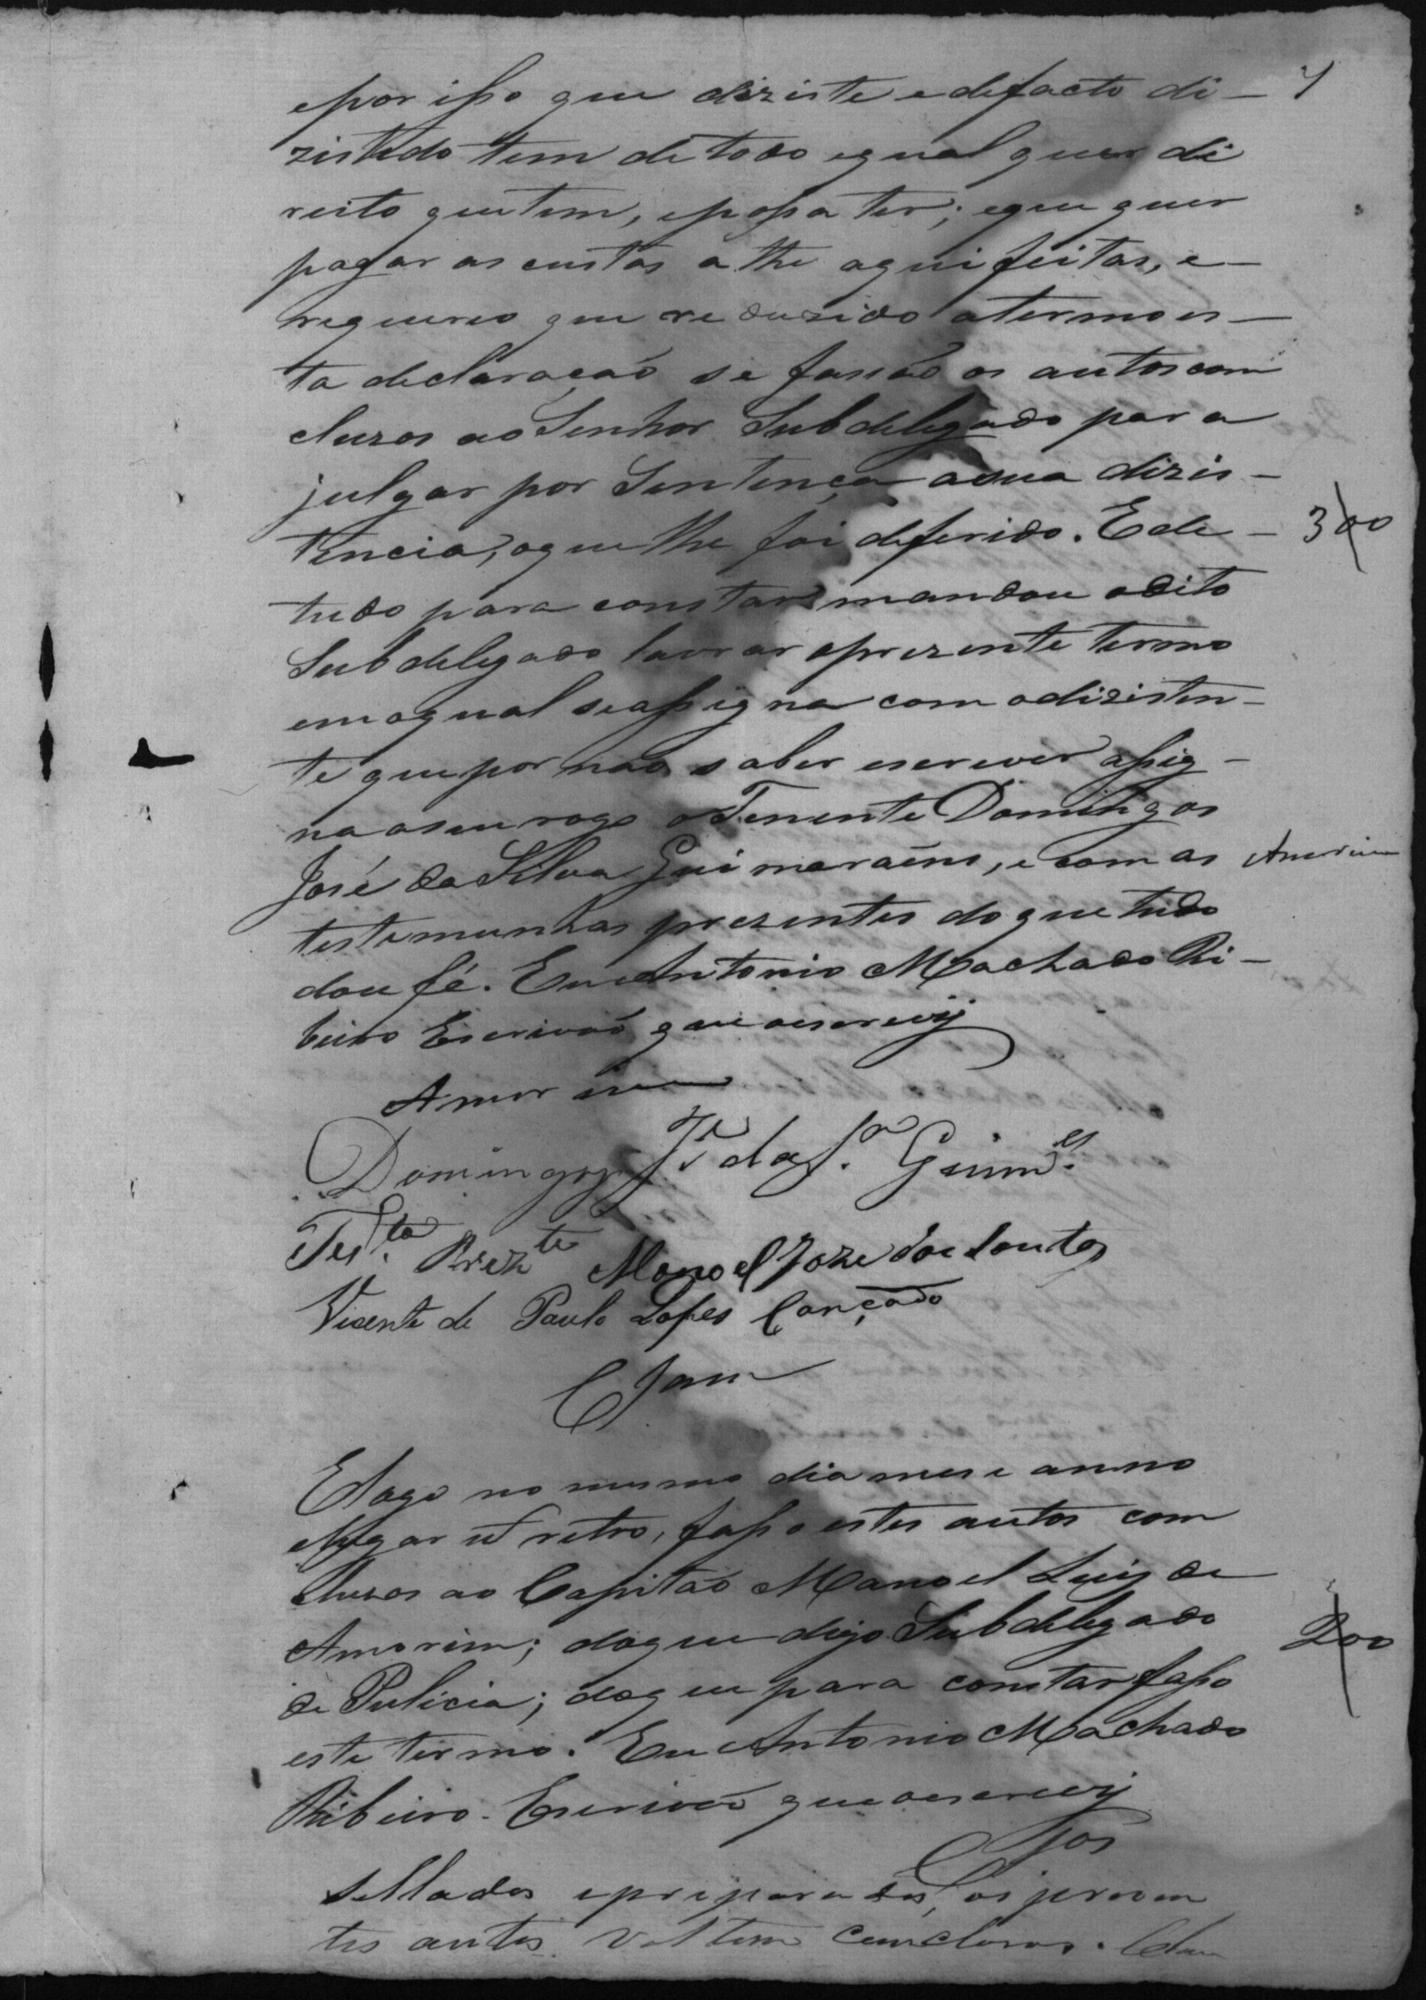 epor ißo que diziste edefacto di- 7
zistido tem detodo equal quer di
reito quetem, epoßa ter; eque quer
pagar as custas athe aqui feitas, e-
requereo que reduzido atermo es-
ta declaração se fassão os autos com
cluzos ao Senhor Subdelegado para
julgar por Sentença asua dizis-
tencia, oque lhe foi deferido. Ede- 300
tudo para constar mandou odito
Subdelegado lavrar oprezente termo
em oqual seaßigna com odizisten-
te quepor não saber escrever aßig-
na aseu rogo o Tenente Domingos
José da Silva Guimaraens, e com as Amorim
testemunhas prezentes doque tudo
dou fé. Eu Antonio Machado Ri-
beiro Escrivão que oescrevij
Amorim
Domingos Je da Sa Guimes.
Testa. Prezte Manoel Joze dos Santos
Vicente de Paulo Lopes Cançado
Clsam
Elogo no mesmo dia mes e anno
elugar ut retro, faßo estes autos com
cluzos ao Capitão Manoel Luis de
Amorim; doque digo Subdelegado 200
de Pulicia; doque para constar faßo
este termo. Eu Antonio Machado
Ribeiro. Escrivão que oescrevij
Clsos
Sellados epreparados, os prezen
tes autos voltem concluzos.